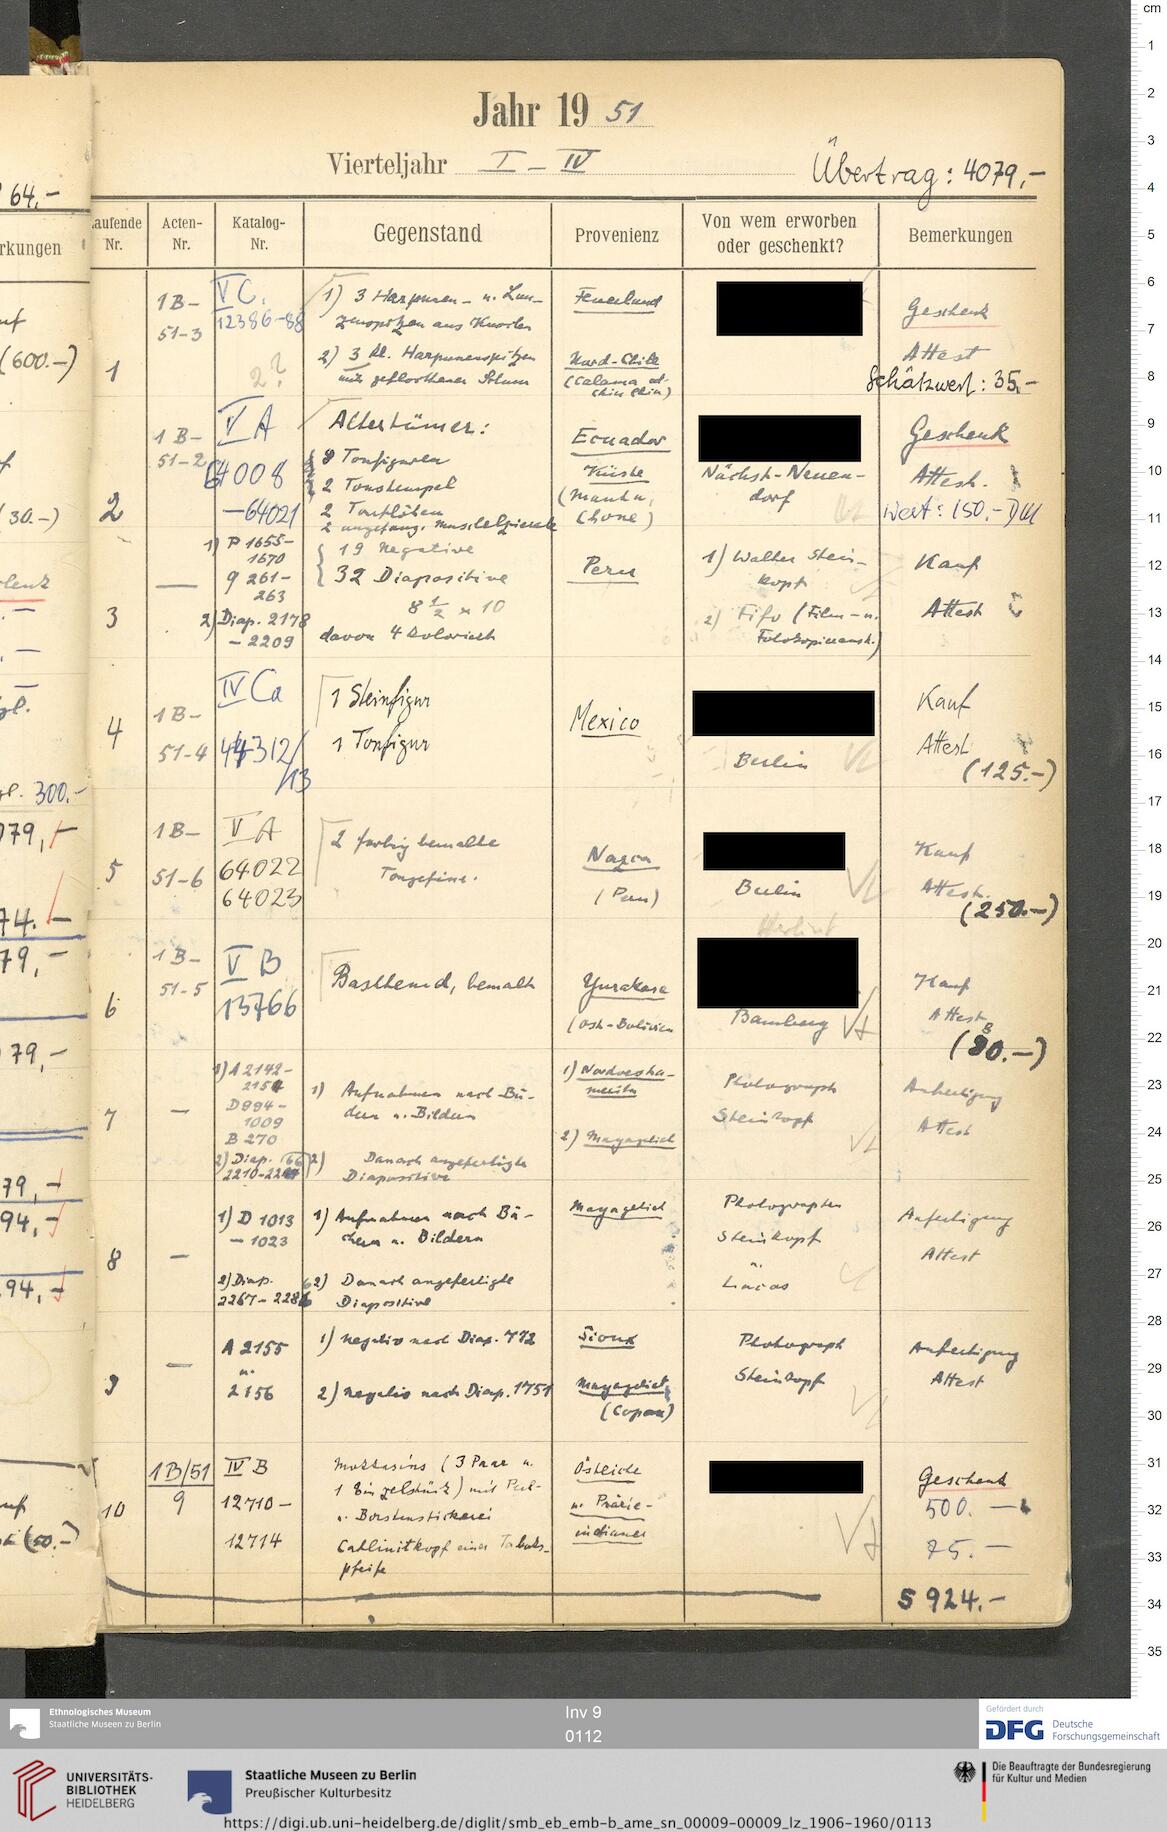 Jahr 19 51
Vierteljahr I – IV
Übertrag: 4079,–
64.–
rkungen
Laufende Nr.
Acten-Nr.
Katalog-Nr.
Gegenstand
Provenienz
Von wem erworben oder geschenkt?
Bemerkungen
1
1 B–
51-3
V C.
12386-88
2?
1) 3 Harpunen- u. Lan-
zenspitzen aus Knochen
2) 3 kl. Harpunenspitzen
Feuerland
Nord-Chile
(Calama
Chiu Chiu)
Geschenk
Attest
Schätzwert: 35,–
2
1 B–
51-2
V A
64008
–64021
Altertümer:
8 Tonfiguren
2 Tonstempel
2 Tonflöten
Ecuador
Küste
(Manta,
Chone)
Nächst-Neuen-
dorf
Geschenk
Attest.
Wert: 150,– DM
3
—
1) P 1655-
1670
9 261-
263
2) Diap. 2178
– 2209
19 Negative
32 Diapositive
8 1/2 x 10
davon 4 koloriert
Peru
1) Walter Stein-
kopf
2) Fifo (Film- u.
Kauf
Attest
4
1 B–
51-4
IV Ca
44312/
/13
1 Steinfigur
1 Tonfigur
Mexico
Berlin
Kauf
Attest
(125.–)
5
1 B–
51-6
V A
64022
64023
2 farbig bemalte
Tongefäße.
Nazca
(Peru)
Berlin
Kauf
Attest.
(250.–)
6
1 B–
51-5
V B
13766
Basthemd, bemalt
Yurakare
(Ost-Bolivien
Bamberg
Kauf
Attest
(80.–)
7
—
1) A 2142-
2154
D 994-
1009
B 270
2) Diap.
1) Aufnahmen nach Bü-
chern u. Bildern
2) Danach angefertigte
Diapositive
1) Nordwestame-
rika
2) Mayagebiet
Photograph
Steinkopf
Anfertigung
Attest
8
—
1) D 1013
– 1023
2) Diap.
2267-2286
1) Aufnahmen nach Bü-
chern u. Bildern
2) Danach angefertigte
Diapositive
Mayagebiet
Photographen
Steinkopf
u.
Lucas
Anfertigung
Attest
9
—
A 2155
u.
2156
1) Negativ nach Diap. 772
2) Negativ nach Diap. 1751
Sioux
Mayagebiet
(Copan)
Photograph
Steinkopf
Anfertigung
Attest
10
1 B/51
9
IV B
12710 –
12714
Mokkasins (3 Paar u.
1 Einzelstück) mit Perl-
u. Borstenstickerei
Catlinitkopf einer Tabaks-
pfeife
Östliche
u. Prärie-
indianer
Geschenk
500.–
75.–
5924.–
cm
1
2
3
4
5
6
7
8
9
10
11
12
13
14
15
16
17
18
19
20
21
22
23
24
25
26
27
28
29
30
31
32
33
34
35
Ethnologisches Museum
Staatliche Museen zu Berlin
Inv 9
0112
Gefördert durch
DFG Deutsche
Forschungsgemeinschaft
UNIVERSITÄTS-
BIBLIOTHEK
HEIDELBERG
Staatliche Museen zu Berlin
Preußischer Kulturbesitz
Die Beauftragte der Bundesregierung
für Kultur und Medien
https://digi.ub.uni-heidelberg.de/diglit/smb_eb_emb-b_ame_sn_00009-00009_lz_1906-1960/0113